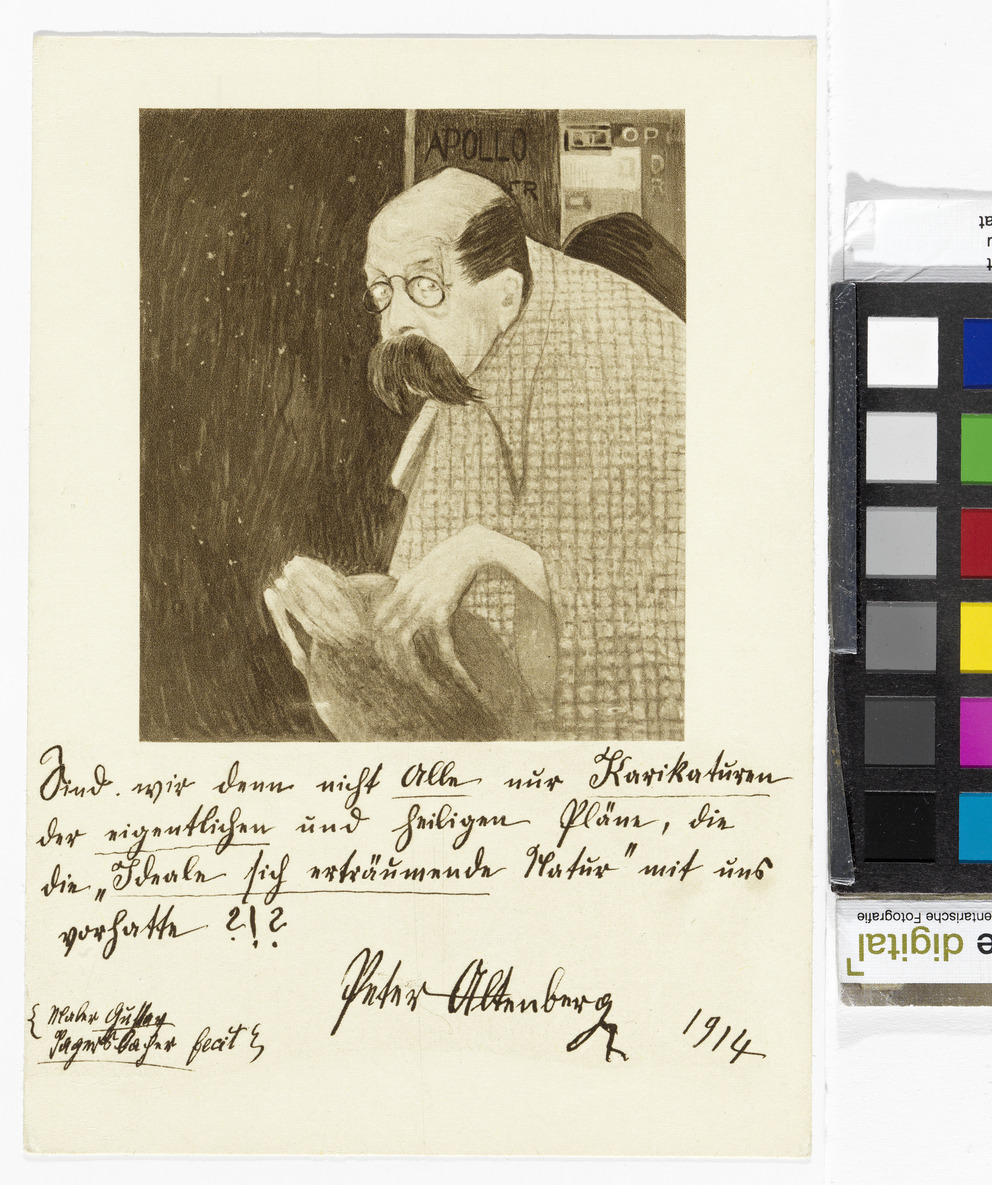 APOLLO
ER
OP
DR
Sind wir denn nicht Alle nur Karikaturen
der eigentlichen und heiligen Pläne, die
die „Ideale sich erträumende Natur" mit uns
vorhatte ?!?
Peter Altenberg
1914
{ Maler Gustav
Jagerspacher fecit }
entarische Fotografie
e digital